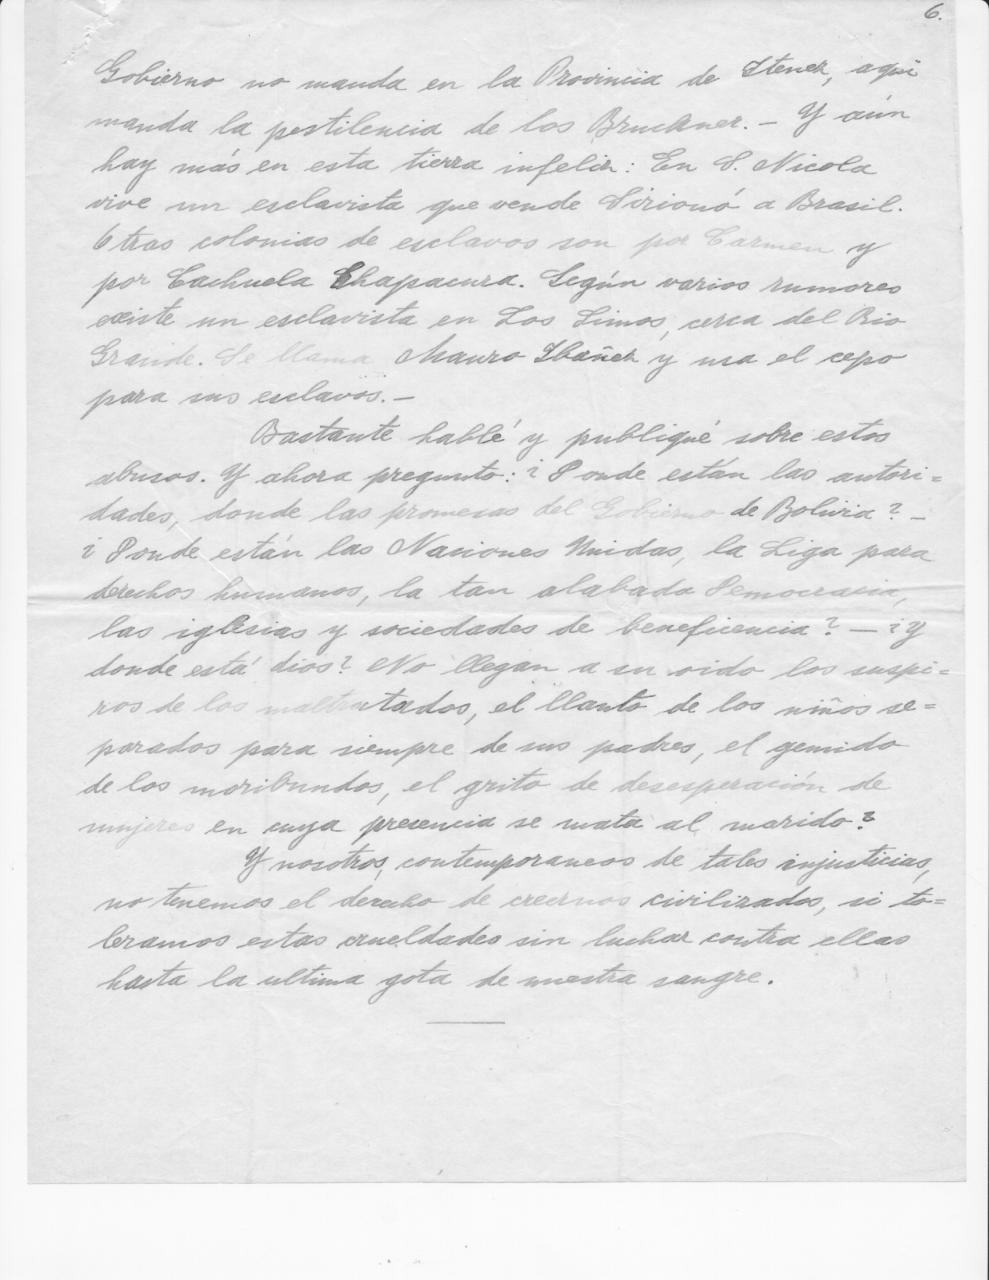 6.
Gobierno no manda en la Provincia de Itenez, aqui
manda la pestilencia de los Bruckner. — Y aún
hay más en esta tierra infeliz: En S. Nicola
vive un esclavista que vende Sirionó a Brasil.
Otras colonias de esclavos son por Carmen y
por Cachuela Chapacura. Según varios rumores
existe un esclavista en Los Limos, cerca del Rio
Grande. Se llama Mauro Ibañez y usa el cepo
para sus esclavos. —
Bastante hablé y publiqué sobre estos
abusos. Y ahora pregunto: ¿ Donde están las autori=
dades, donde las promesas del Gobierno de Bolivia? —
¿ Donde están las Naciones Unidas, la Liga para
derechos humanos, la tan alabada Democracia,
las iglesias y sociedades de beneficencia? — ¿ Y
donde está dios? No llegan a su oido los suspi=
ros de los maltratados, el llanto de los niños se=
parados para siempre de sus padres, el gemido
de los moribundos, el grito de desesperación de
mujeres en cuya presencia se mata al marido?
Y nosotros, contemporaneos de tales injusticias,
no tenemos el derecho de creernos civilizados, si to=
leramos estas crueldades sin luchar contra ellas
hasta la ultima gota de nuestra sangre.